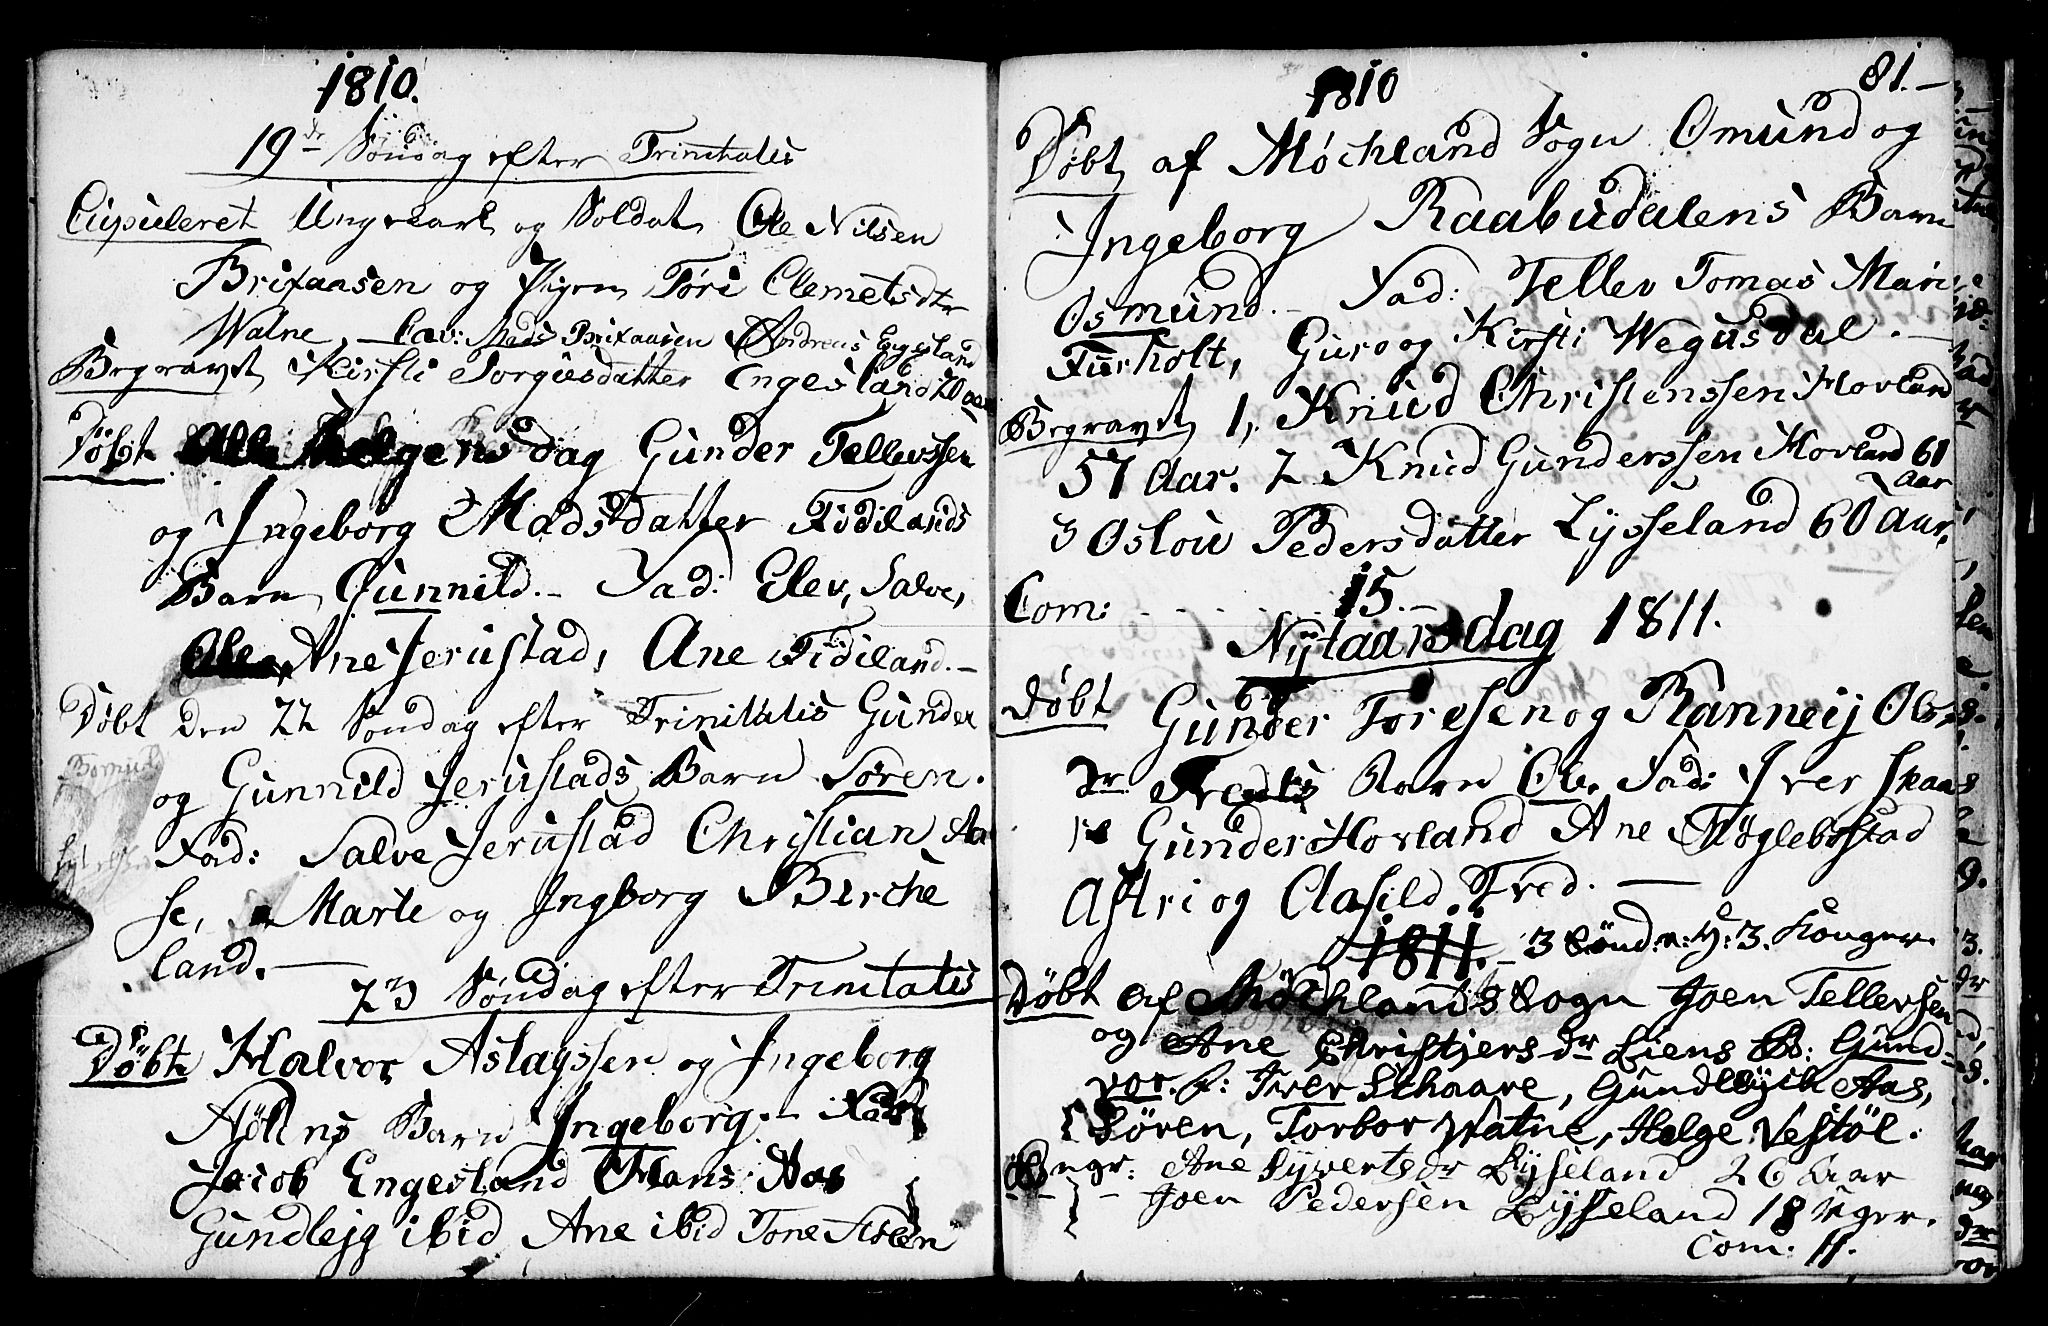 1810.
19de Søndag efter Trinitatis
Cupuleret Ungkarl og Soldat Ole Nilsen
Brifaasen og Pigen Tóri Clemetsdtr
Watne. Cav: Mads Brifaasen Andreas Egesland
Begravet Kirsti Torgusdatter Engesland 20 aar
Døbt Alle Helgens dag Gunder Tellevssen
og Ingeborg Madsdatter Fidilands
Barn Gunnild. Fad: Elev, Salve,
Ane Jerustad, Ane Fidiland.
Døbt den 22 Søndag efter Trinitatis Gunder
og Gunnild Jerustads Barn Søren.
Fad: Salve Jerustad Christian Aa
se, Marte og Ingborg Birche
land.
23 Søndag efter Trinitatis
Døbt Halvor Aslagssen og Ingeborg
Barn Ingeborg. Fad:
Jacob Engesland Hans Aas
Gundlejg ibid Ane ibid Tone
1810 81.
Døbt af Móchland Sogn Omund og
Ingeborg Raabudalens Barn
Osmund. Fad: Tellev Tomas Mari
Furholt, Guro og Kirsti Wegusdal.
Begravet 1, Knud Christenssen Hovland
57 Aar. 2 Knud Gunderssen Hovland 61
Aar
3 Oslou Pedersdatter Lysseland 60 Aar.
Com: 15.
Nytaarsdag 1811.
Døbt Gunder Toresen og Ranneij Ols
dr Treds Barn Ole. Fad: Iver Skaa
re Gunder Hovland Ane Møglebostad
Astri og Aasild Tred.
1811. 3 Sönd: n: H: 3. Konger.
Døbt af Móchlands Sogn Joen Tellevsen
og Ane Christjersdr Liens B: Gund-
vor. F: Iver Schaare, Gundlejch Aas,
Sören, Torbor Watne, Helge Vestöl.
Begr: Ane Syvertsdr Lysseland 26 Aar
Joen Pedersen Lysseland 18 Uger.
Com: 11.